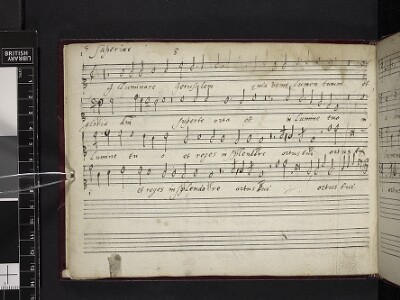 Superius
8
BRITISH
LIBRARY
Illuminare Jerusalem quia venit lumen tuum et
gloria dni super te orta est in lumine tuo in
lumine tuo et reges in splendore ortus tui ortus tui
et reges in splendore ortus tui ortus tui